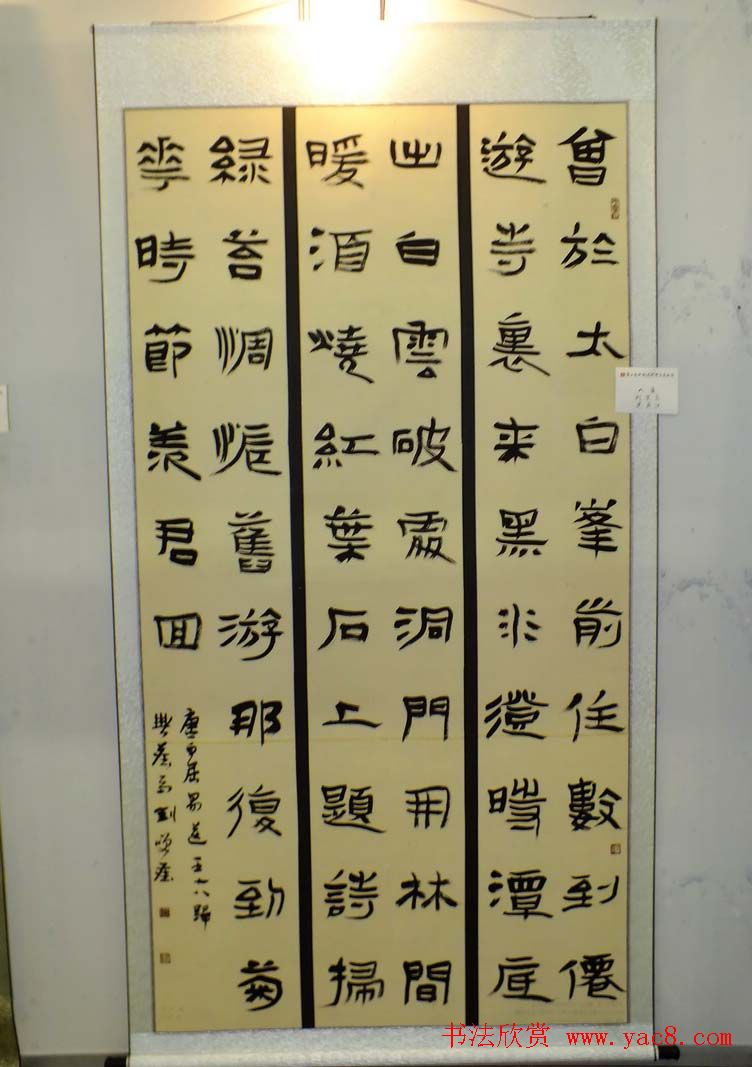 曾於太白峯前住數到僊
遊寺裏来黑水澄時潭底
出白雲破處洞門開林間
暖酒燒紅葉石上題詩掃
緑苔惆悵舊游那復到菊
華時節羡君回
唐白居易送王十八歸
书法欣赏 www.yac8.com